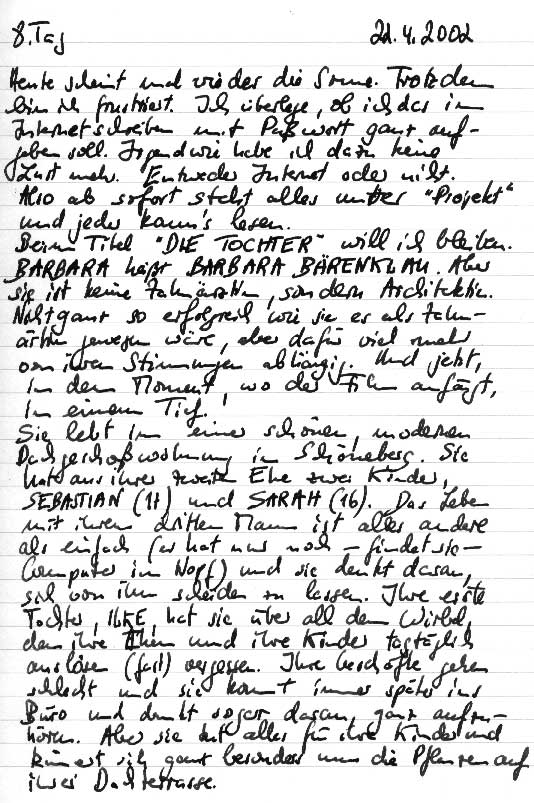 8. Tag 22.4.2002
Heute scheint mal wieder die Sonne. Trotzdem
bin ich frustriert. Ich überlege, ob ich das im
Internet schreiben mit Paßwort ganz auf-
geben soll. Irgendwie habe ich dazu keine
Lust mehr. Entweder Internet oder nicht.
Also ab sofort steht alles unter "Projekt"
und jeder kann's lesen.
Beim Titel "DIE TOCHTER" will ich bleiben.
BARBARA heißt BARBARA BÄRENKLAU. Aber
sie ist keine Zahnärztin, sondern Architektin.
Nicht ganz so erfolgreich wie sie es als Zahn-
ärztin gewesen wäre, aber dafür viel mehr
von ihren Stimmungen abhängig. Und jetzt,
in dem Moment, wo der Film anfängt,
in einem Tief.
Sie lebt in einer schönen, modernen
Dachgeschoßwohnung in Schöneberg. Sie
hat aus ihrer zweiten Ehe zwei Kinder,
SEBASTIAN (11) und SARAH (16). Das Leben
mit ihrem dritten Mann ist alles andere
als einfach (er hat nur noch – findet sie –
Computer im Kopf) und sie denkt daran,
sich von ihm scheiden zu lassen. Ihre erste
Tochter, ILKE, hat sie über all dem Wirbel,
den ihre Ehen und ihre Kinder tagtäglich
auslösen (fast) vergessen. Ihre Geschäfte gehen
schlecht und sie kommt immer später ins
Büro und denkt sogar daran, ganz aufzu-
hören. Aber sie tut alles für ihre Kinder und
kümmert sich ganz besonders um die Pflanzen auf
ihrer Dachterrasse.